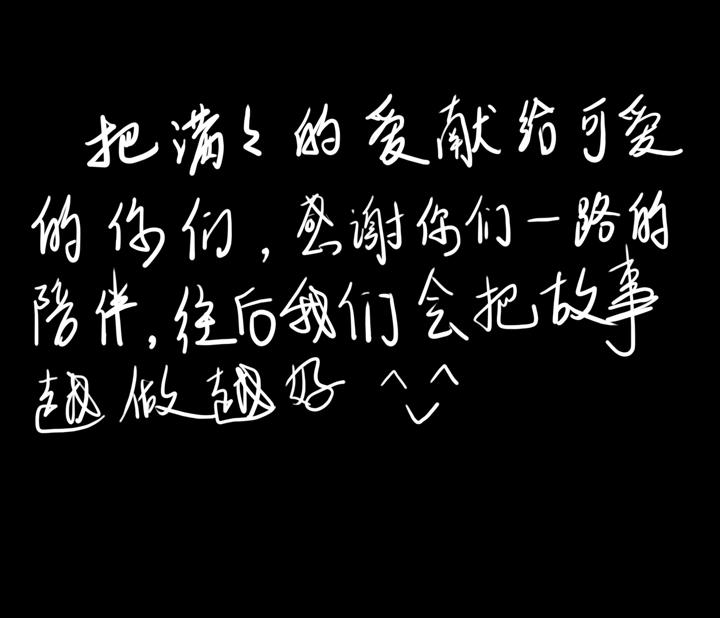 把满々的爱献给可爱
的你们,感谢你们一路的
陪伴,往后我们会把故事
越做越好 ^◡^